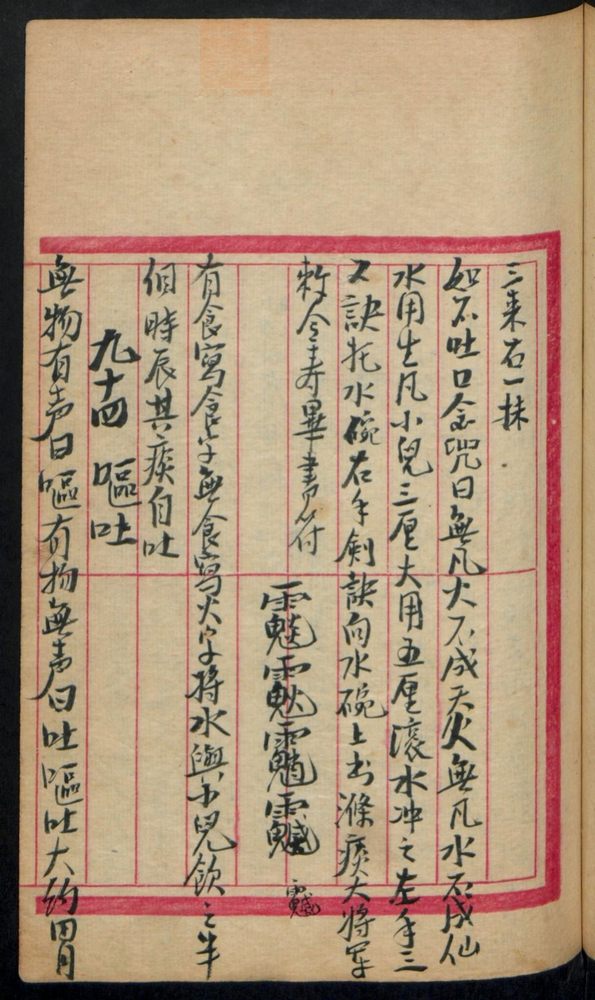 三来右一抹
如不吐口念咒曰無凡火不成天火無凡水不成仙
水用生凡小兒三厘大用五厘滚水冲之左手三
又訣托水碗右手劍訣向水碗上書滌痰大將軍
敕令寿畢書符
有食寫食字無食寫火字将水與小兒飲之半
個時辰其痰自吐
九十四 嘔吐
無物有声曰嘔有物無声曰吐嘔吐大約胃